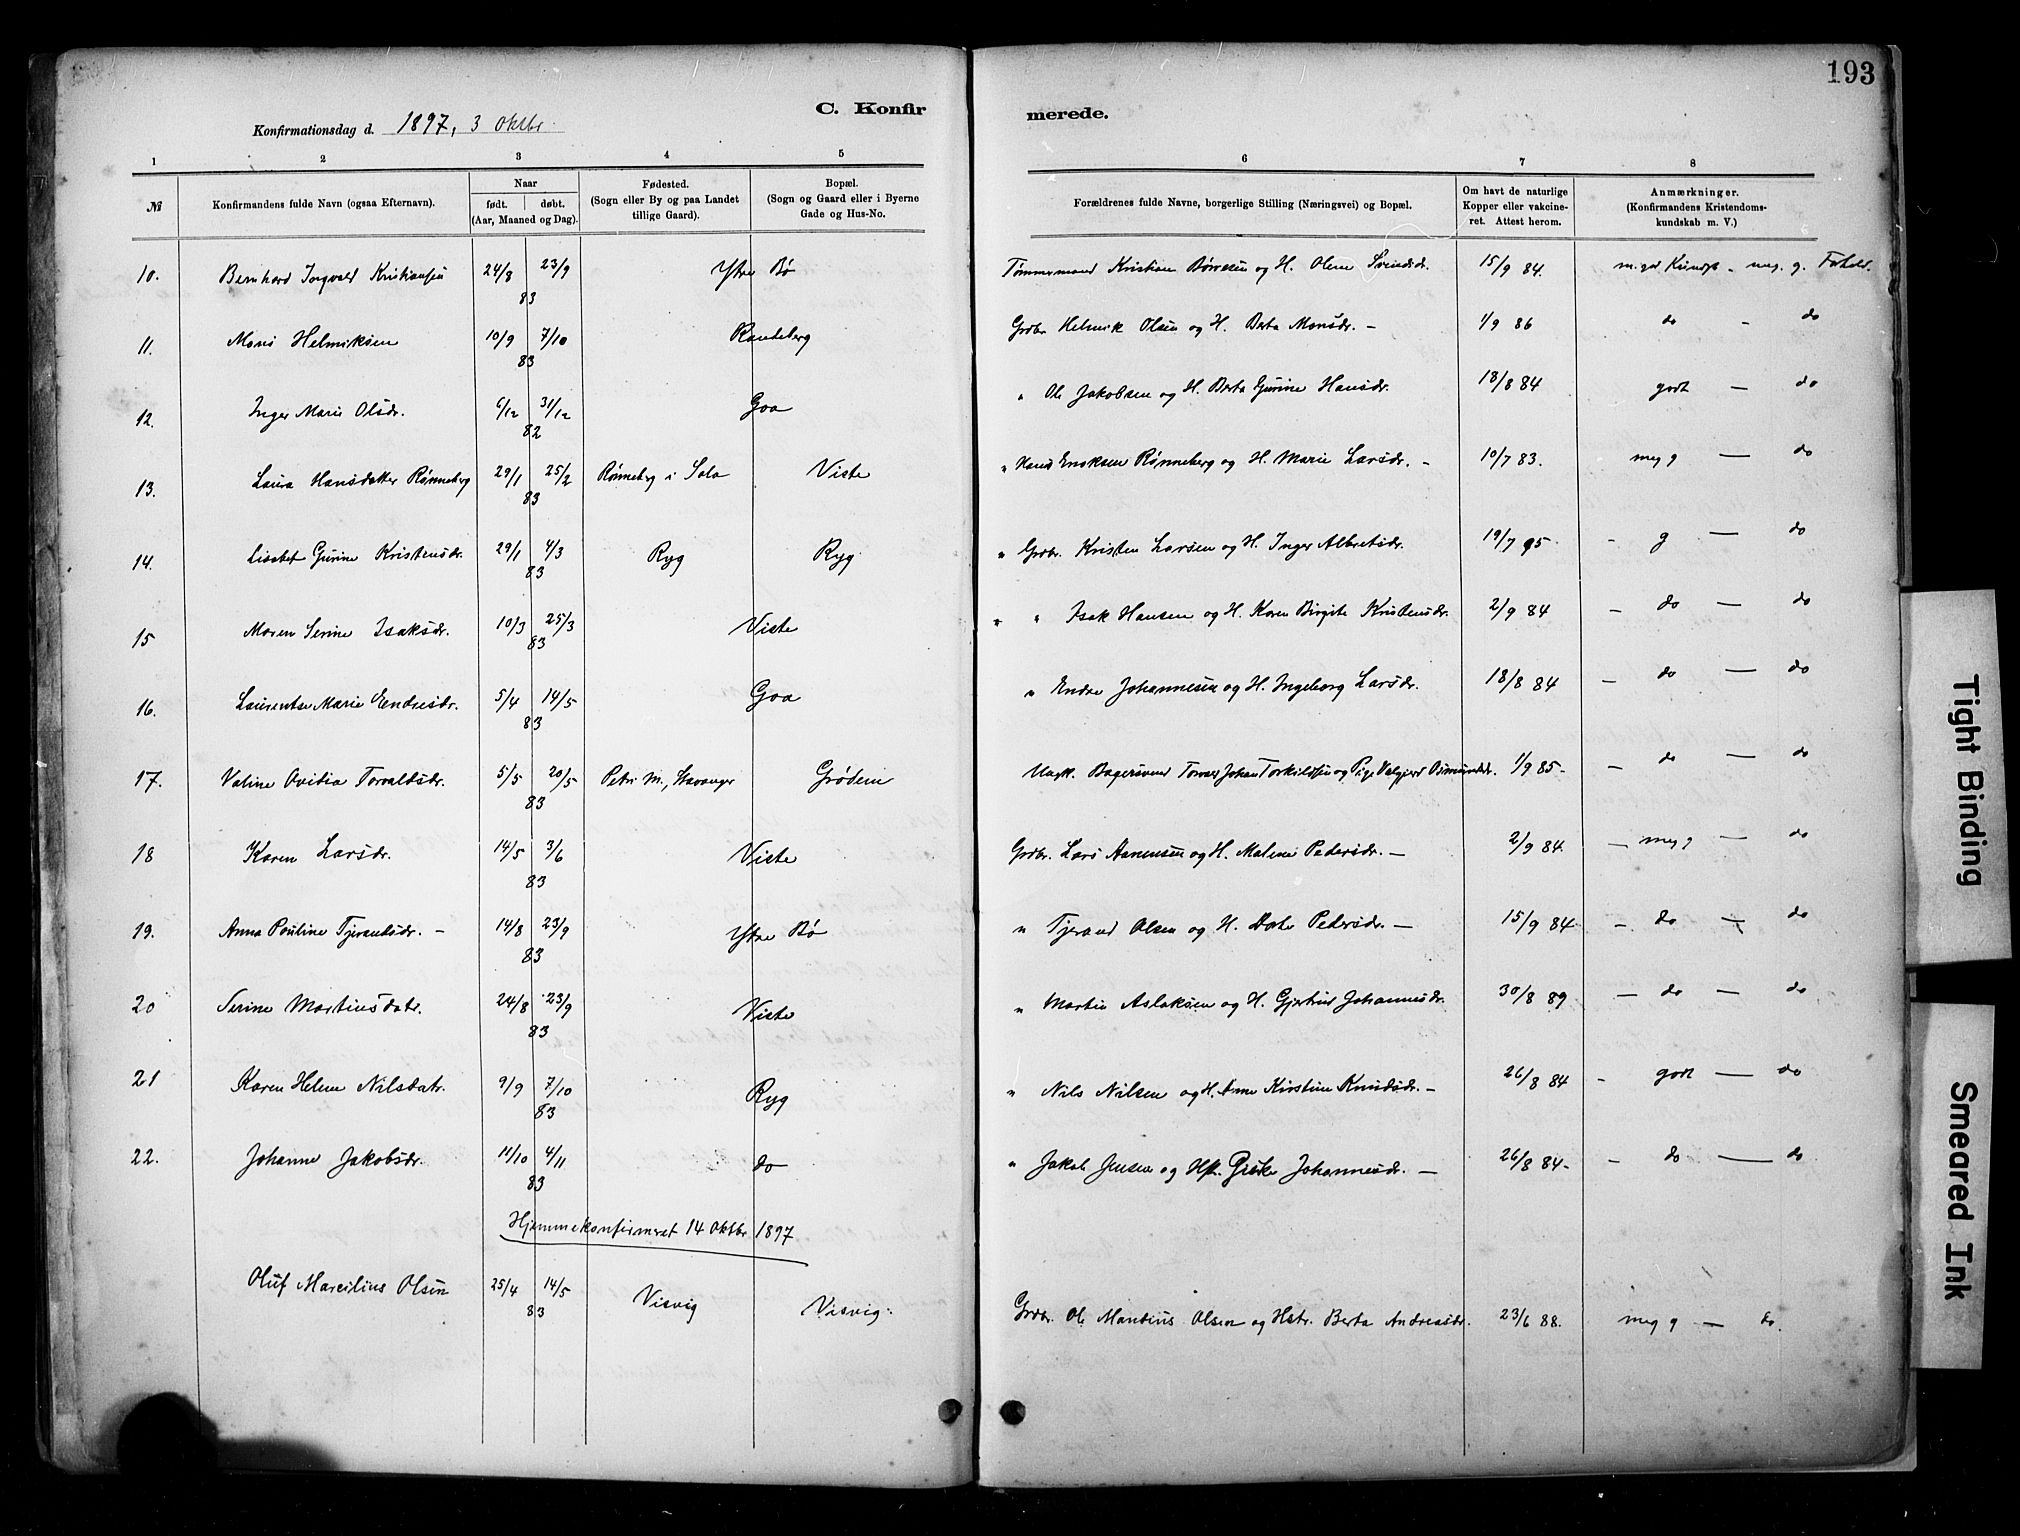 193
C. Konfirmerede.
Konfirmationsdag d. 1897, 3 Oktbr.
1 2 3 4 5 6 7 8
№ Konfirmandens fulde Navn (ogsaa Efternavn). Naar født. døbt. (Aar, Maaned og Dag). Fødested. (Sogn eller By og paa Landet tillige Gaard). Bopæl. (Sogn og Gaard eller i Byerne Gade og Hus-No. Forældrenes fulde Navne, borgerlige Stilling (Næringsvei) og Bopæl. Om havt de naturlige Kopper eller vakcineret. Attest herom. Anmærkninger. (Konfirmandens Kristendomskundskab m. V.)
10. Bernhard Ingvald Kristiansen 24/8 23/9 83 Ytre Bø Tømmermand Kristian Børresen og H. Olene Svendsdr. 15/9 84. m. god Kundsk - meg. g. Forhold.
11. Mons Helmiksen 10/9 7/10 83 Randeberg Grdbr. Helmik Olsen og H. Berta Monsdr. – 1/9 86 do - do
12. Inger Marie Olsdr. 6/12 31/12 82 Goa " Ole Jakobsen og H. Berta Gurine Hansdr. 18/8 84 godt — do
13. Laura Hansdatter Rønneberg 29/1 25/2 83 Rønneberg i Sola Viste " Hans Eriksen Rønneberg og H. Marie Larsdr. – 10/7 83. meg g — do
14. Lisabet Gurine Kristensdr. 29/1 4/3 83 Ryg Ryg " Grdbr. Kristen Larsen og H. Inger Albretsdr. 19/7 95 - g — do
15 Maren Serine Isaksdr. 10/3 25/3 83 Viste " " Isak Hansen og H. Karen Birgite Kristensdr. 2/9 84 - do — do
16. Laurentse Marie Endresdr. 5/4 14/5 83 Goa " Endre Johannesen og H. Ingeborg Larsdr. 18/8 84 - do — do
17. Valine Ovidia Torvaldsdr. 5/5 20/5 83 Petri M., Stavanger Grødem Ungk. Bagersvend Johan Torkildsen og Pige Valgjerd Osmundsdr. 1/9 85 - - do — do
18 Karen Larsdr. 14/5 3/6 83 Viste Grdbr. Lars Aanensen og H. Malene Pedersdr. — 2/9 84. - meg g — do
19. Anna Pauline Tjerandsdr. - 14/8 23/9 83 Ytre Bø " Tjerand Olsen og H. Dorte Pedersdr. — 15/9 84 - do — do
20 Serine Martinusdatr. 24/8 23/9 83 Viste " Martin Aslaksen og H. Gjertrud Johannesdr. 30/8 89 - do — do
21 Karen Helene Nilsdatr. 9/9 7/10 83 Ryg " Nils Nilsen og H. Anne Kirstine Knudsdr. – 26/8 84 - godt — do
22. Johanne Jakobsdr. 11/10 4/11 83 do " Jakob Jensen og Hst. Giske Johannesdr. — 26/8 84 - do — do
Hjemmekonfirmeret 14 Oktbr 1897
Oluf Marcilius Olsen 25/4 14/5 83 Visvig Visvig. Grdbr. Ole Mandius Olsen og Hstr. Berta Andreasdr. 23/6 88. meg g — do.
Tight Binding
Smeared Ink